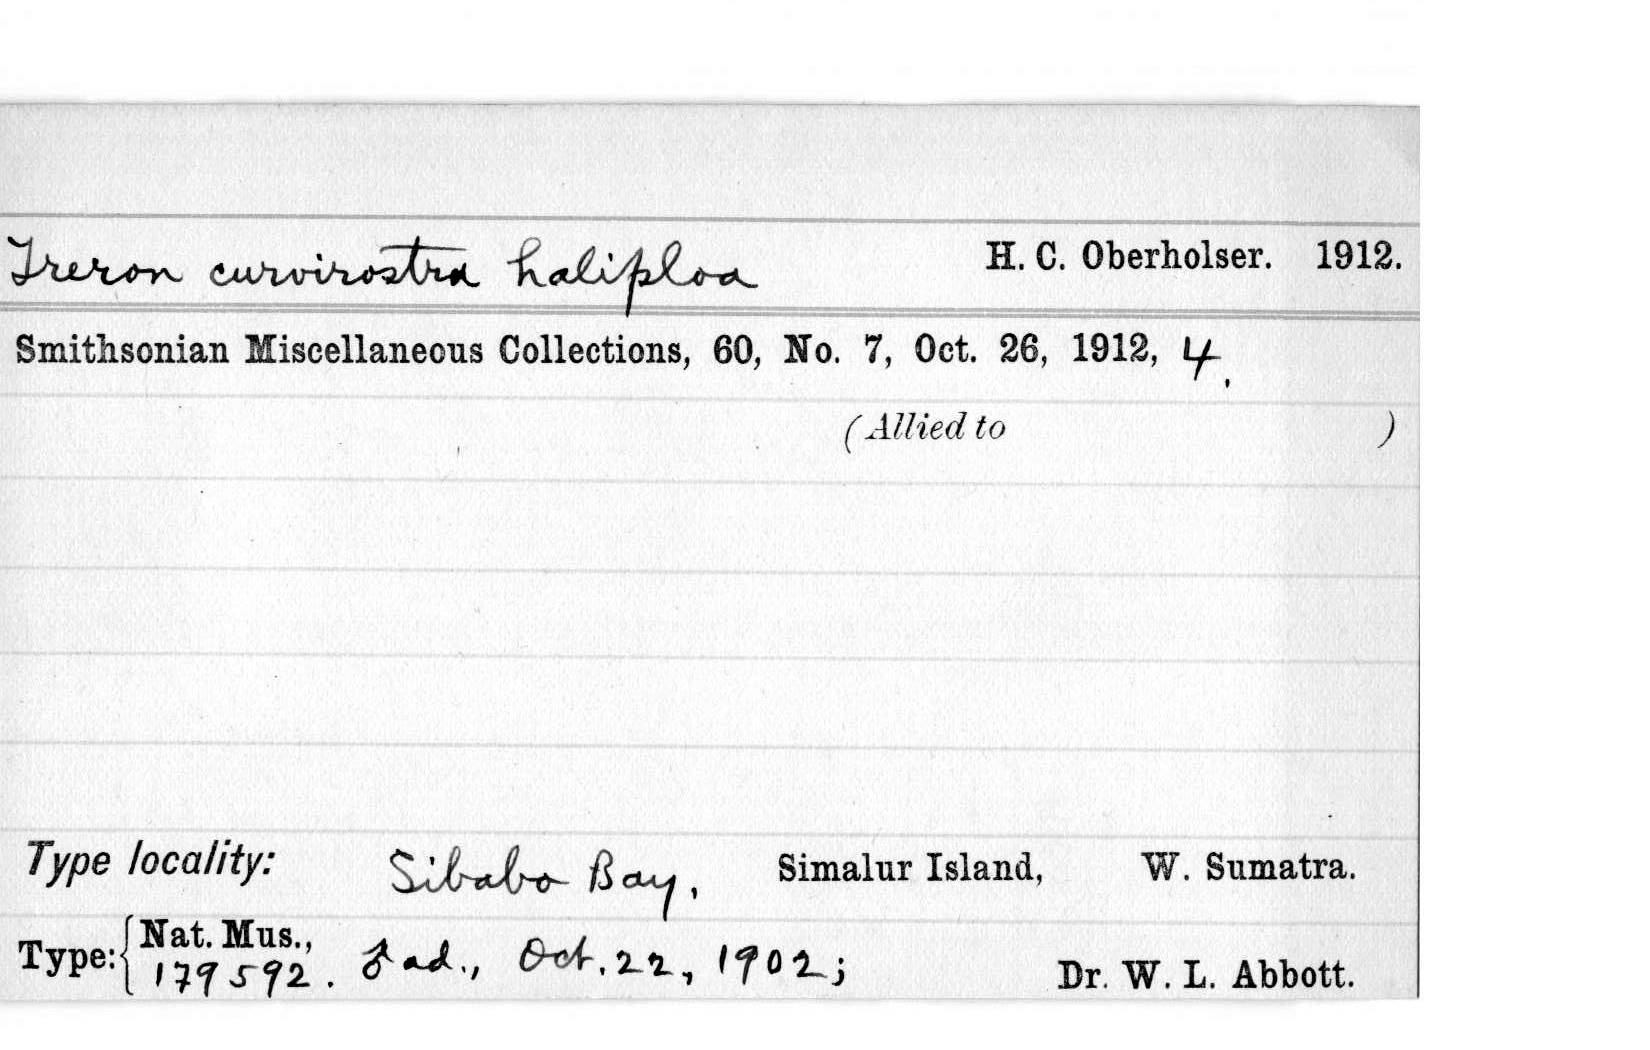 Treron curvirostra haliploa H. C. Oberholser. 1912.
Smithsonian Miscellaneous Collections, 60, No. 7, Oct. 26, 1912, 4.
(Allied to )
Type locality: Sibabo Bay, Simalur Island, W. Sumatra.
Type: { Nat. Mus.,
179592. ♂ ad., Oct. 22, 1902; Dr. W. L. Abbott.